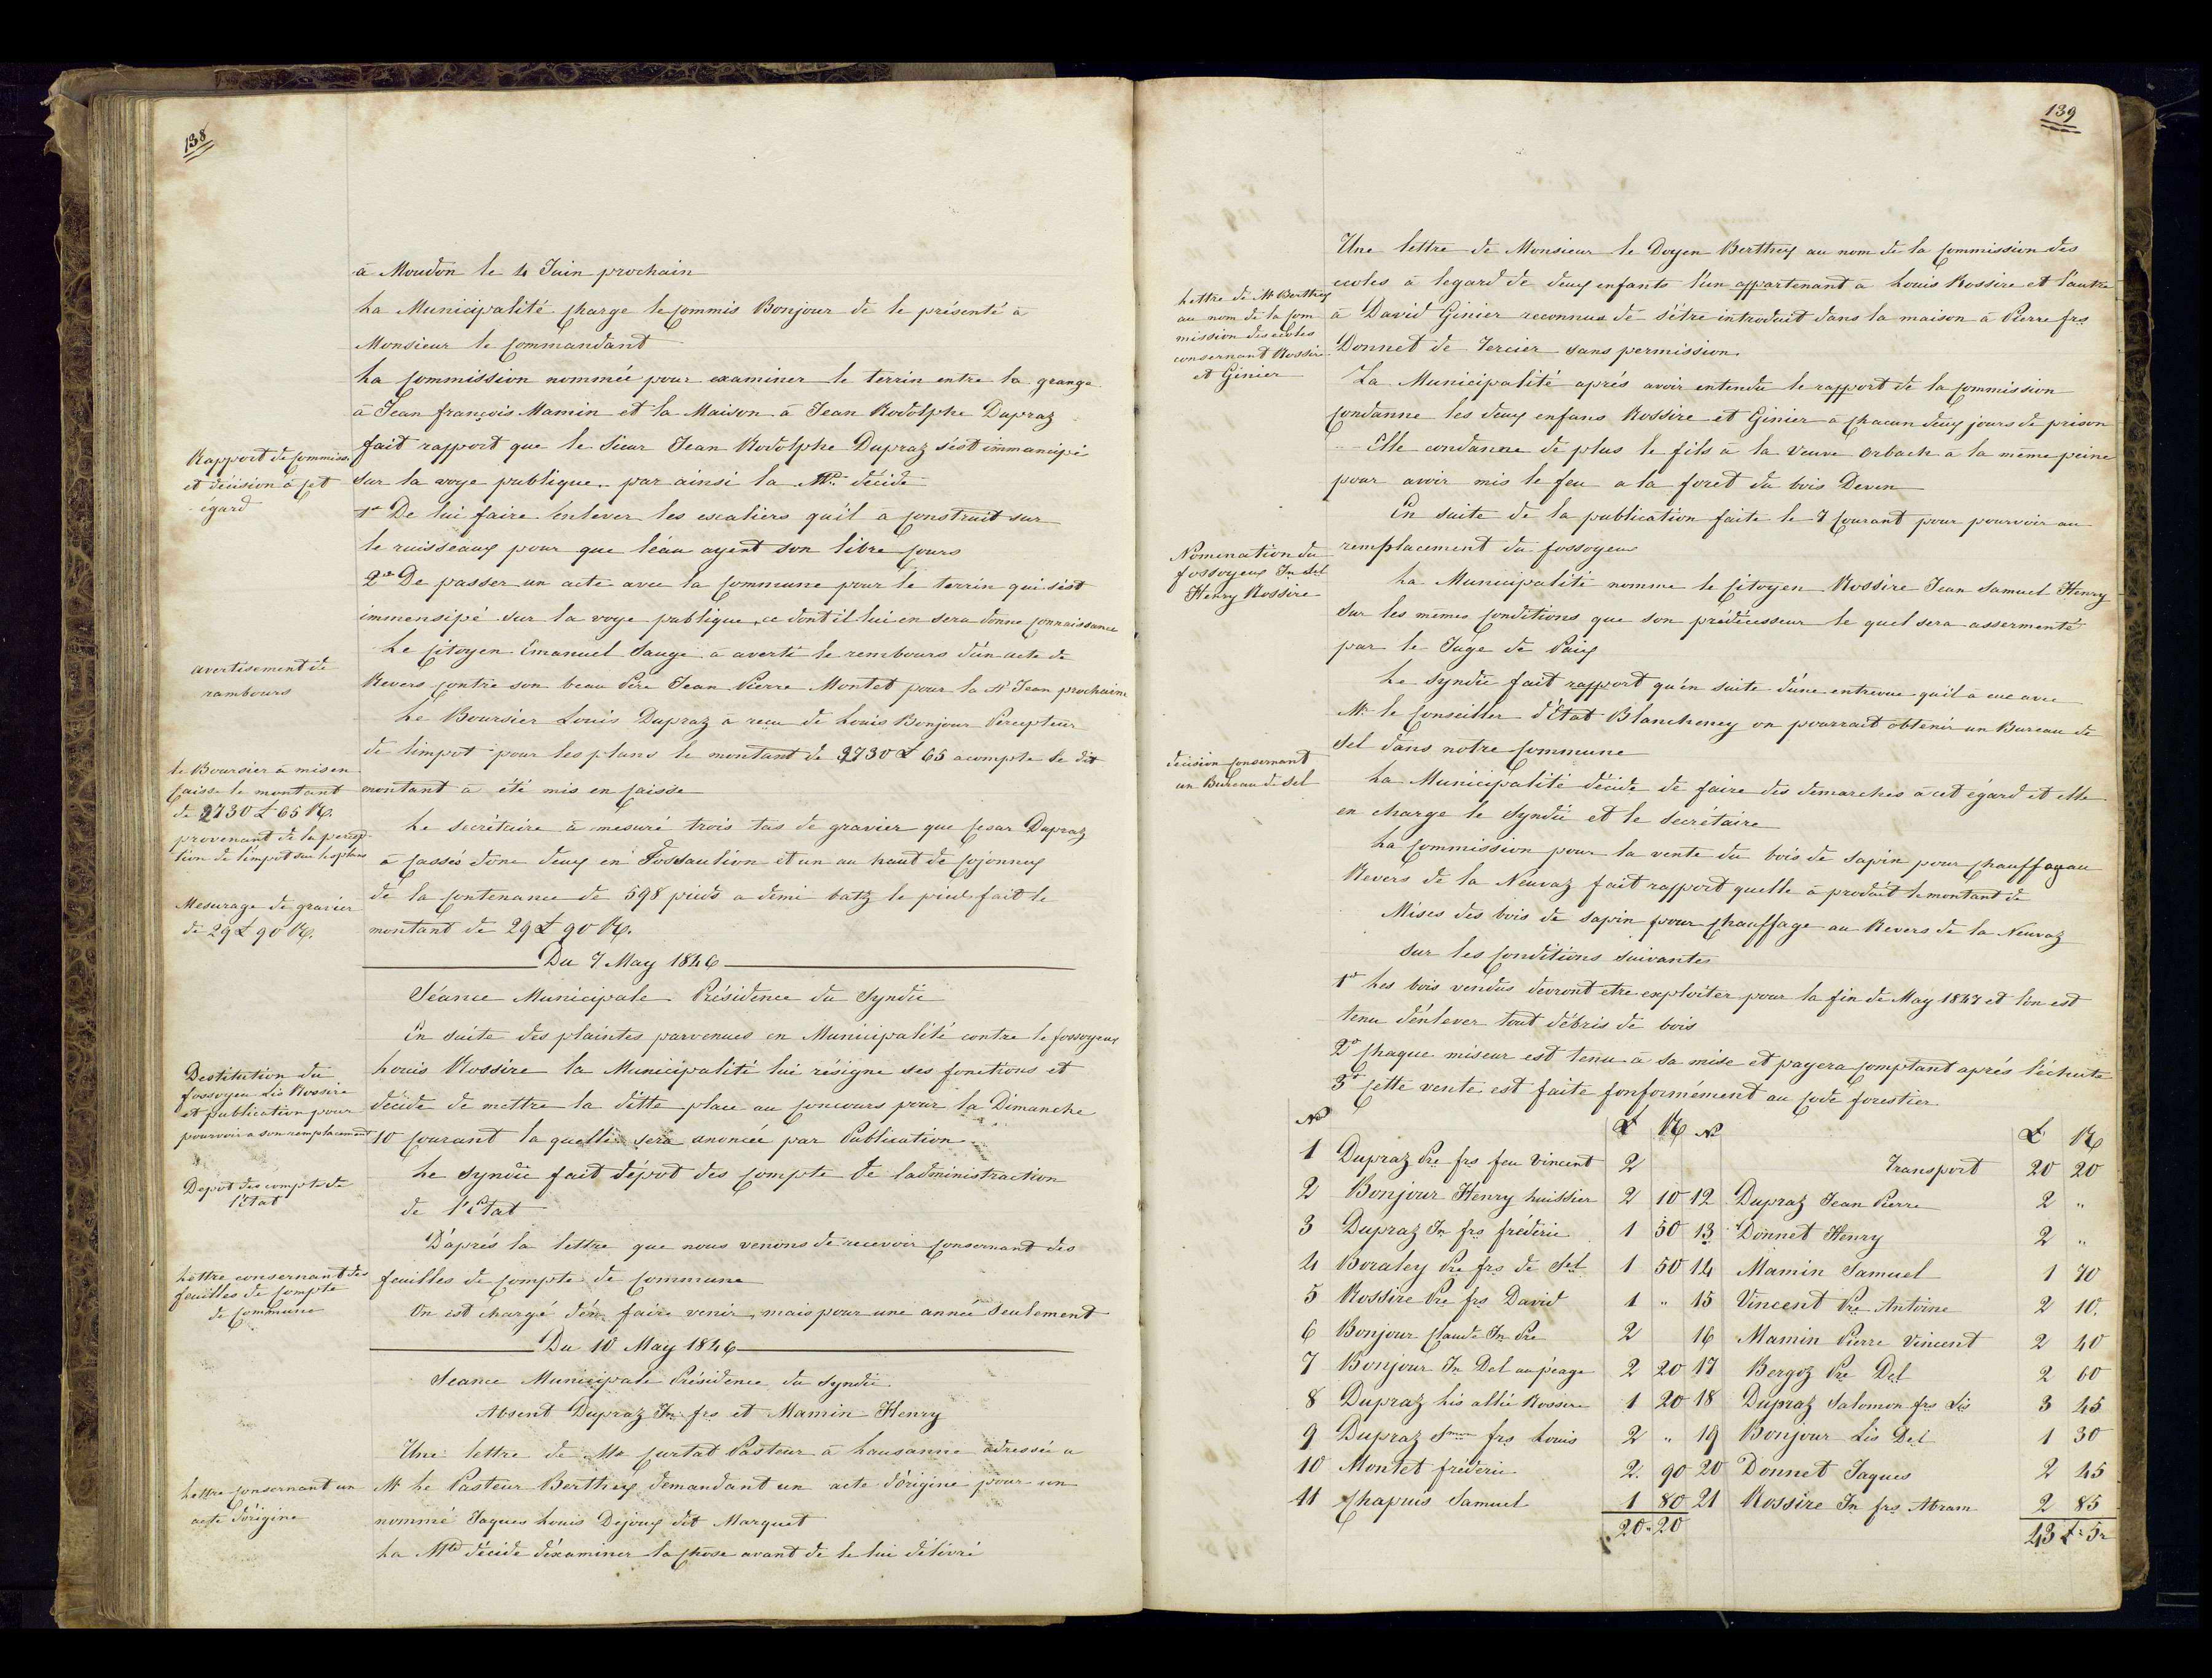 138
à Moudon le 4 Juin prochain
La Municipalité charge le commis Bonjour de le présenté à
Monsieur le Commandant
La commission nommée pour examiner le terrin entre la grange
à Jean françois Mamin et la Maison à Jean Rodolphe Dupraz
Rapport de commiss.
et décision à cet
égard
fait rapport que le Sieur Jean Rodolphe Dupraz s'est immancipé
sur la voye publique. par ainsi la Mté. décide
1° De lui faire enlever les escaliers qu'il a construit sur
le ruisseaux pour que l'éau ayent son libre cours
2° De passer un acte avec la commune pour le terrin qui s'est
immensipé sur la voye publique, ce dont il lui en sera donne connaissance
avertisement de
rambours
Le citoyen Emanuel Sauge à averti le rembours d'un acte de
Revers contre son beau Père Jean Pierre Montet pour la St Jean prochaine
Le Boursier Louis Dupraz a reçu de Louis Bonjour Percepteur
de limpot pour les plans le montant de 2730 £ 65 acompte le dit
le Boursier à mis en
caisse le montant
de 2730 £ 65 R.
provenant de la percep-
tion de l'impot sur les plans
montant a été mis en caisse
Le secrétaire à mesuré trois tas de gravier que Cesar Dupraz
à cassés done deux en Fossaution et un au haut de Cojonnex
Mesurage de gravier
de 29 £ 90 R.
de la contenance de 598 pieds a demi batz le pieds fait le
montant de 29 £ 90 R.
Du 7 May 1846
Séance Municipale Présidence du Syndic
En suite des plaintes parvenues en Municipalité contre le fossoyeux
Destitution du
fossoyeu Lis Rossire
et publication pour
pourvoir a son remplacement
Louis Rossire la Municipalité lui résigne ses fonctions et
décide de mettre la ditte place au concours pour la Dimanche
10 courant la quelle sera anoncée par Publication
Dépot des compte de
l'état
Le Syndic fait dépot des compte de l'administraction
de l'État
D'aprés la lettre que nous venons de recevoir consernant des
Lettre consernant des
feuilles de compte
de Commune
feuilles de compte de commune
On est chargé d'en faire venir, mais pour une année seulement
Du 10 May 1846
Seance Municipale Présidence du Syndic
Absent Dupraz Jn frs et Mamin Henry
Une lettre de Mr Curtat Pasteur à Lausanne adressée a
Lettre consernant un
acte d'origine
Mr Le Pasteur Berthex demandant un acte d'origine pour un
nommé Jaques Louis Dejoux dit Marguet
La Mté décide d'examiner la chose avant de le lui délivré
139
Une lettre de Monsieur le Doyen Berthex au nom de la Commission des
Lettre de Mr Berthex
au nom de la com
mission des écoles
consernant Rossire
et Ginier
ecoles à legard de deux enfants l'un appartenant à Louis Rossire et l'autre
à David Ginier reconnus de s'être introduit dans la maison à Pierre frs
Donnet de Tercier sans permission
La Municipalité aprés avoir entendu le rapport de la commission
condanne les deux enfans Rossire et Ginier à chacun deux jours de prison
Elle condanne de plus le fils à la veuve Orbach à la même peine
pour avoir mis le feu a la foret du bois Deven
En suite de la publication faite le 7 Courant pour pourvoir au
Nomination du
fossoyeux Jn Sel
Henry Rossire
remplacement du fossoyeux
La Municipalité nomme le citoyen Rossire Jean Samuel Henry
sur les mêmes conditions que son prédécesseur le quel sera assermenté
par le Juge de Paix
Le Syndic fait rapport qu'en suite d'une entrevue qu'il à eue avec
Mr. le Conseiller d'État Blancheney on pourrait obtenir un Bureau de
décision consernant
un Bureau de Sel
Sel dans notre commune
La Municipalité décide de faire des demarches à cet égard et elle
en charge le Syndic et le secrétaire
La commission pour la vente du bois de sapin pour chauffag au
Revers de la Neuvaz fait rapport quelle à produit le montant de
Mises des bois de sapin pour chauffage au Revers de la Neuvaz
sur les conditions suivantes
1° Les bois vendus devront etre exploiter pour la fin de May 1847 et l'on est
tenu d'enlever tout débris de bois
2° chaque miseur est tenu à sa mise et payera comptant aprés l'échute
3° cette vente est faite conformément au code forestier
N° £ R N° £ R
1 Dupraz Pre frs feu Vincent 2 Transport 20 20
2 Bonjour Henry huissier 2 10 12 Dupraz Jean Pierre 2 "
3 Dupraz Jn frs fréderic 1 50 13 Donnet Henry 2 "
4 Boraley Pre frs de Sel 1 50 14 Mamin Samuel 1 70
5 Rossire Pre frs David 1 " 15 Vincent Pre Antoine 2 10
6 Bonjour Claude Jn Pre 2 16 Mamin Pierre Vincent 2 40
7 Bonjour Jn Del au péage 2 20 17 Bergoz Pre Del 2 60
8 Dupraz Lis allié Rossire 1 20 18 Dupraz Salomon frs Lis 3 45
9 Dupraz Smon frs Louis 2 " 19 Bonjour Lis Del 1 30
10 Montet fréderic 2 90 20 Donnet Jaques 2 45
11 Chapuis Samuel 1 80 21 Rossire Jn frs Abram 2 85
20 20 43 £ 5 r